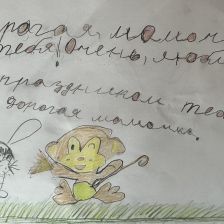 рогая мамоч
тебя очень, любл
!
праздником теб
дорогая мамочка.